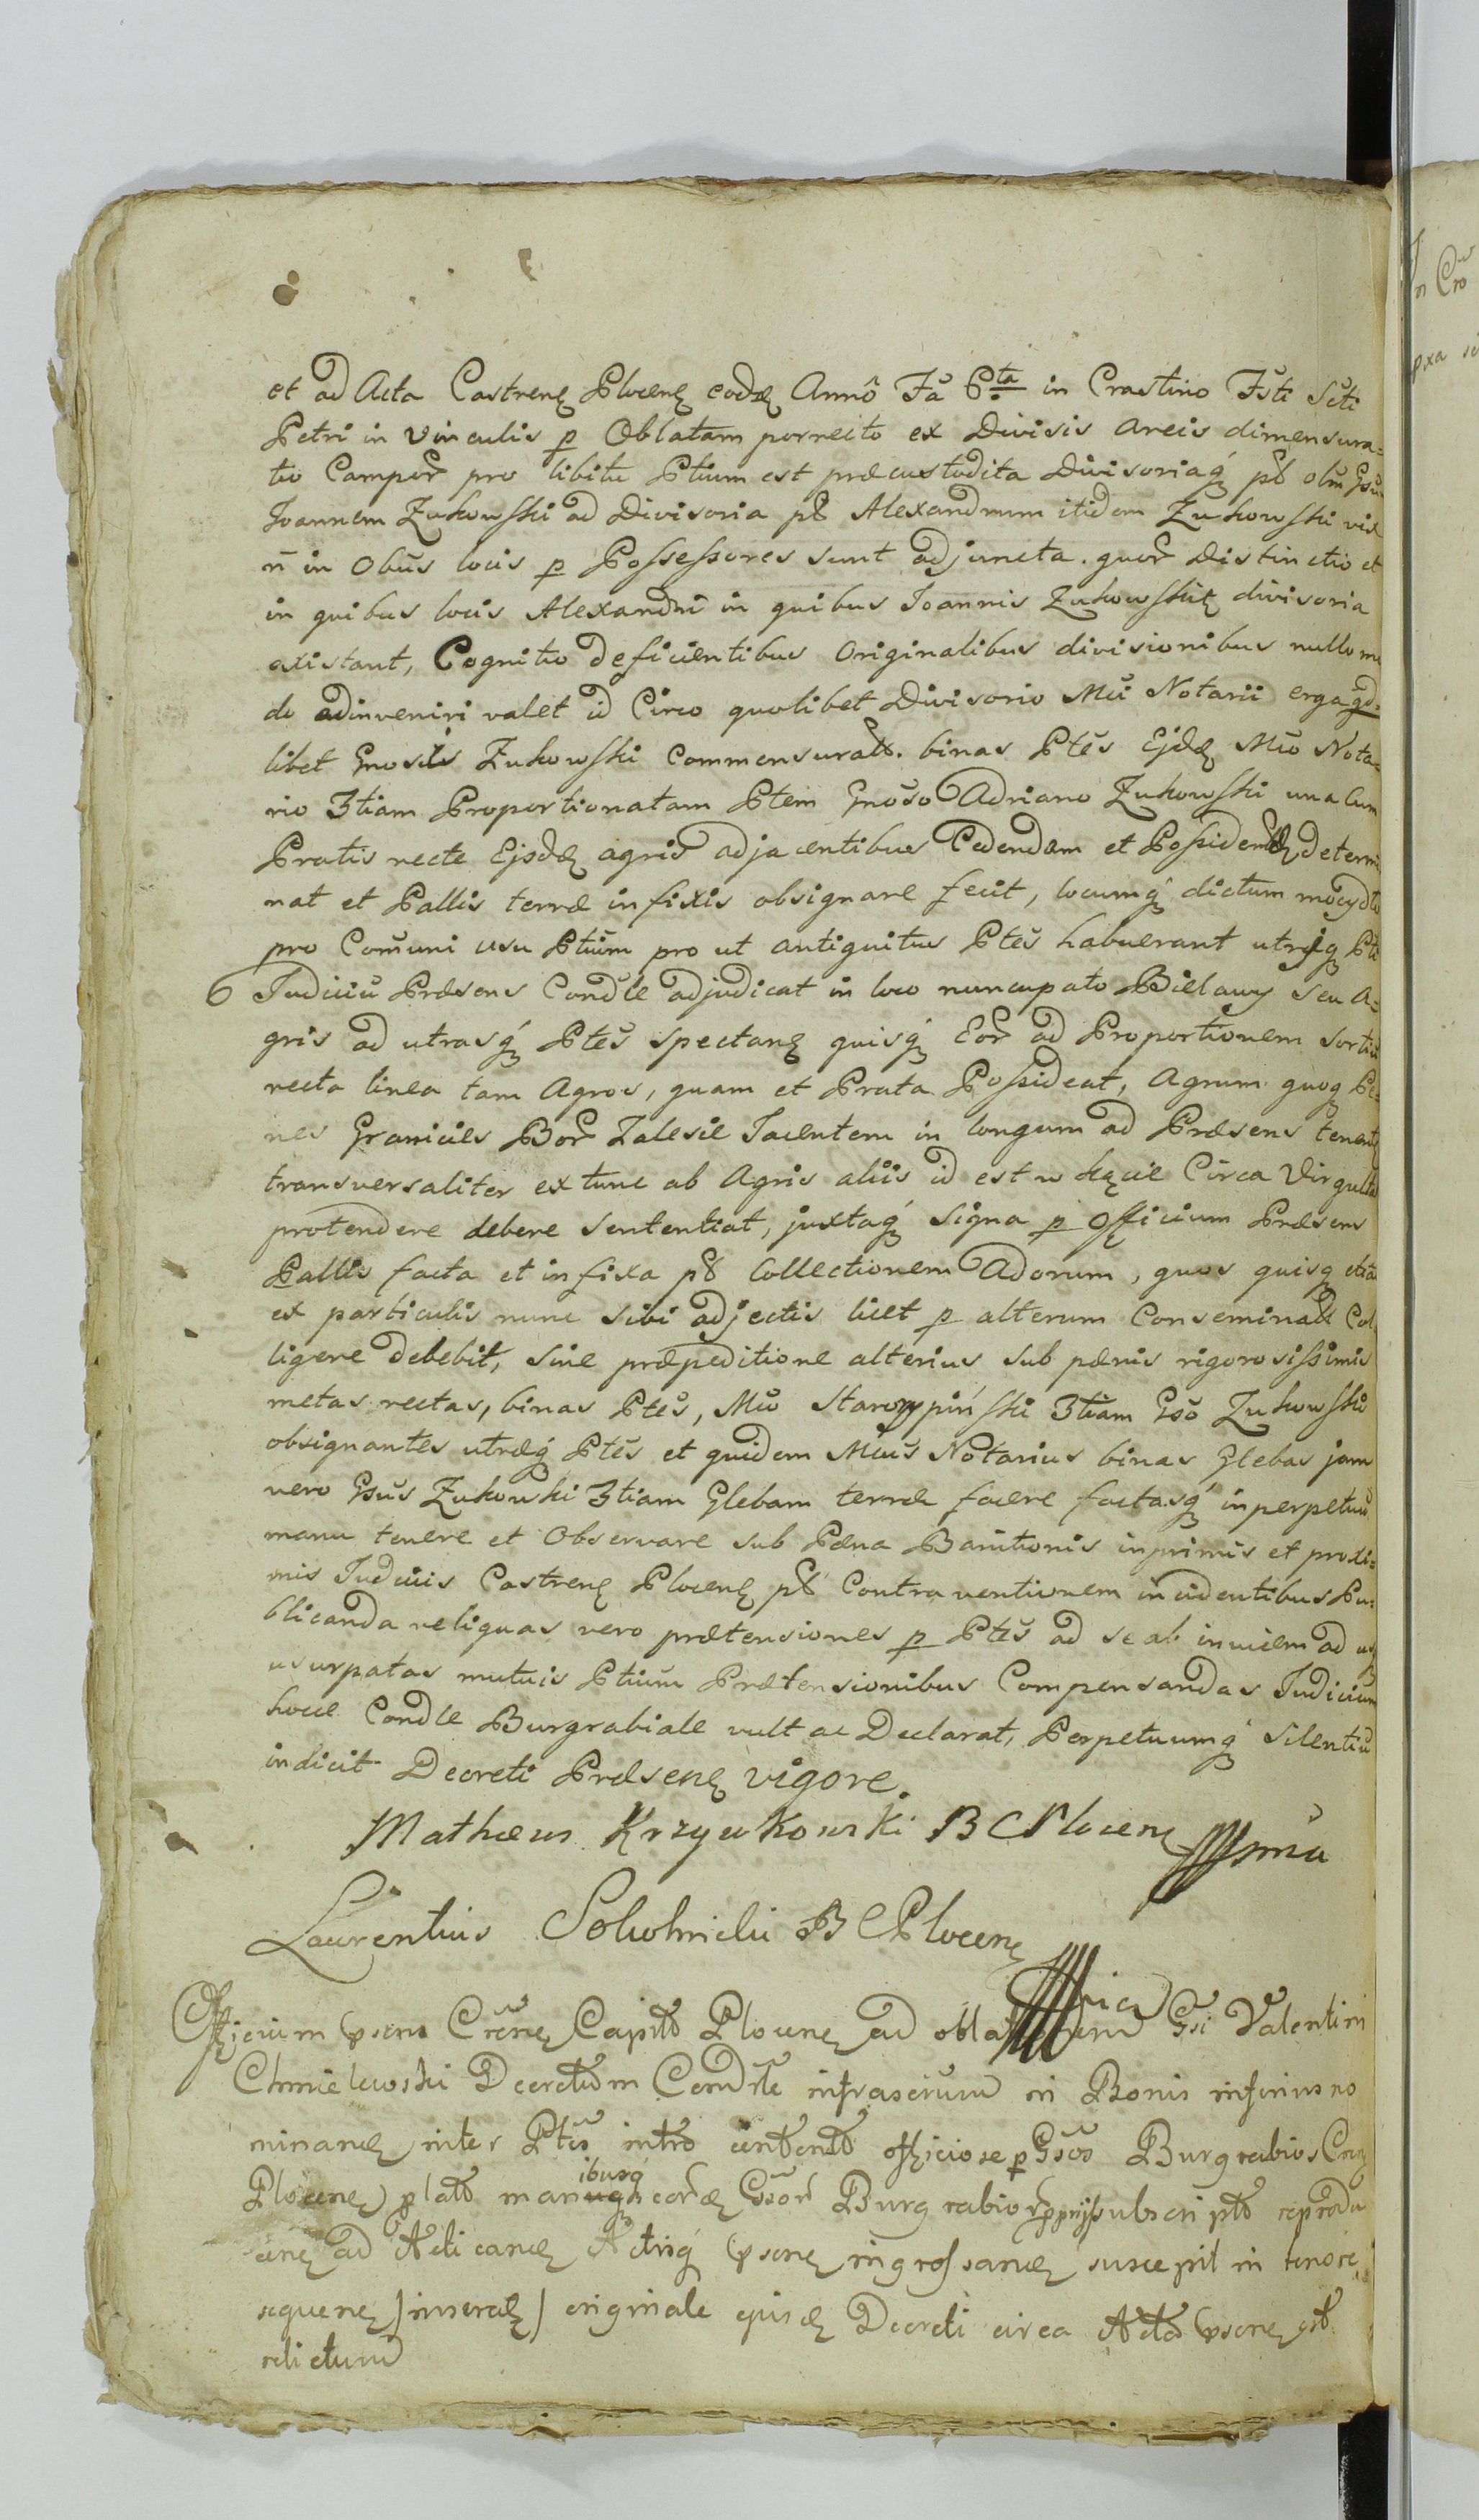 et ad Acta Castrenς Plocenς eodę Annô Fã 6ta in Crastino Fsti Scti
Petri in Vinculis p Oblatam porrecto ex Divisis Areis dimensura=
tio Campor pro libitu Ptium est præcustodita Divisoriaq́ȝ pt olim Gsũ
Joannem Zukowski ad Divisoria pt Alexandrum itidem Zukowski vix
ñ in Obũs locis p Possessores sunt adjuncta. quor Distinctio et
in quibus locis Alexandri in quibus Joannis Zukowskię divisoria
existant, Cognitio deficientibus Originalibus divisionibus nullo mo
do adinveniri valet id Circo quolibet Divisorio Mci Notarii erga qd=
libet Gnosus Zukowski Commensurato. binas Ptes Ejdę Mco Nota=
rio 3tiam Proportionatam Ptem Gnoso Adriano Zukowski una Cum
Pratis recte Ejsdę agris adjacentibus Cedendam et Possidendę determi
nat et Pallis terræ infixis obsignare fecit, locumq́ȝ dictum
pro Comuni usu Ptium pro ut antiquitus Ptes habuerant utrijq Pti
6 Judiciũ Præsens Condle adjudicat in loco nuncupato Bielawy seu A=
gris ad utrasq́ȝ Ptes spectanς quisq́ȝ Eor ad Proportionem sortiũ
recta linea tam Agros, quam et Prata Possideat, Agrum quoq Pe=
nes Granicies Bor Zalesie Jacentem in longum ad Præsens tenent
transversaliter ex tunc ab Agris aliis id est w kącie Circa Virgulta
protendere debere sententiat, juxtaq́ȝ signa p Officium Præsens
Pallis facta et infixa pt Collectionem Adorum, quos quisq etia
ex particulis nunc sibi adjectis licet p alterum Conseminato Col
ligere debebit, sine præpeditione alterius sub pænis rigorosissimis
metas rectas, binas Ptes, Mco Staroxypiński 3tiam Gso Zukowski
obsignantes utræq́ȝ Ptes et quidem Mcus Notarius binas Glebas jam
vero Gsus Zukowski 3tiam Glebam terræ facere factasq́ȝ in perpetuũ
manu tenere et Observare sub Pæna Banitionis inprimis et proxi=
mis Judiciis Castrenς Plocenς pt Contraventionem incidentibus Pu=
blicanda reliquas vero prætensiones p Ptes ad se ab invicem ad
usurpatas mutuis Ptium Prætensionibus Compensandas Judicium
hocce Condle Burgrabiale vult ac Declarat, Perpetuumq́ȝ Silentiũ
indicit Decreti Præsenς vigore.
Mathæus Krzywkowski B C Plocenς mia
Laurentius B C Plocenς
Officium psens Crẽnς Capitlo Plocenς ad oblationem Gsi Valentini
Chmielewski Decretum Condrle infrascrum in Bonis inferius no
minanς inter Ptes intro contento officiose p Gsos Burgrabios Crenς
Plocenς plato manibusq́ȝ eordę Gsor Burgrabior pprijs subscripto reprodu
cenς ad Acticanς Actisq́ȝ psenς ingrossanς suscepit in tenore
sequenς /inseratur/ originale ejusdę Decreti circa Acta psenς est
relictum